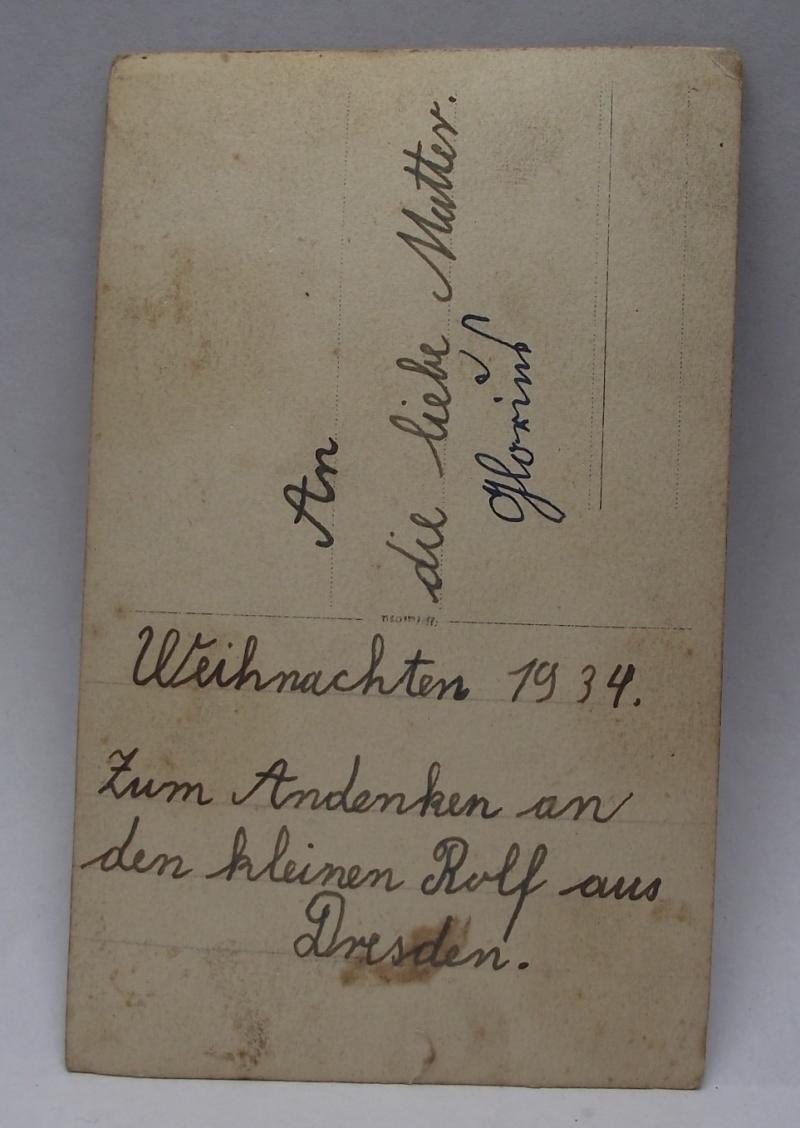 Weihnachten 1934.
Zum Andenken an
den kleinen Rolf aus
Dresden.
An
die liebe Mutter.
Glorius